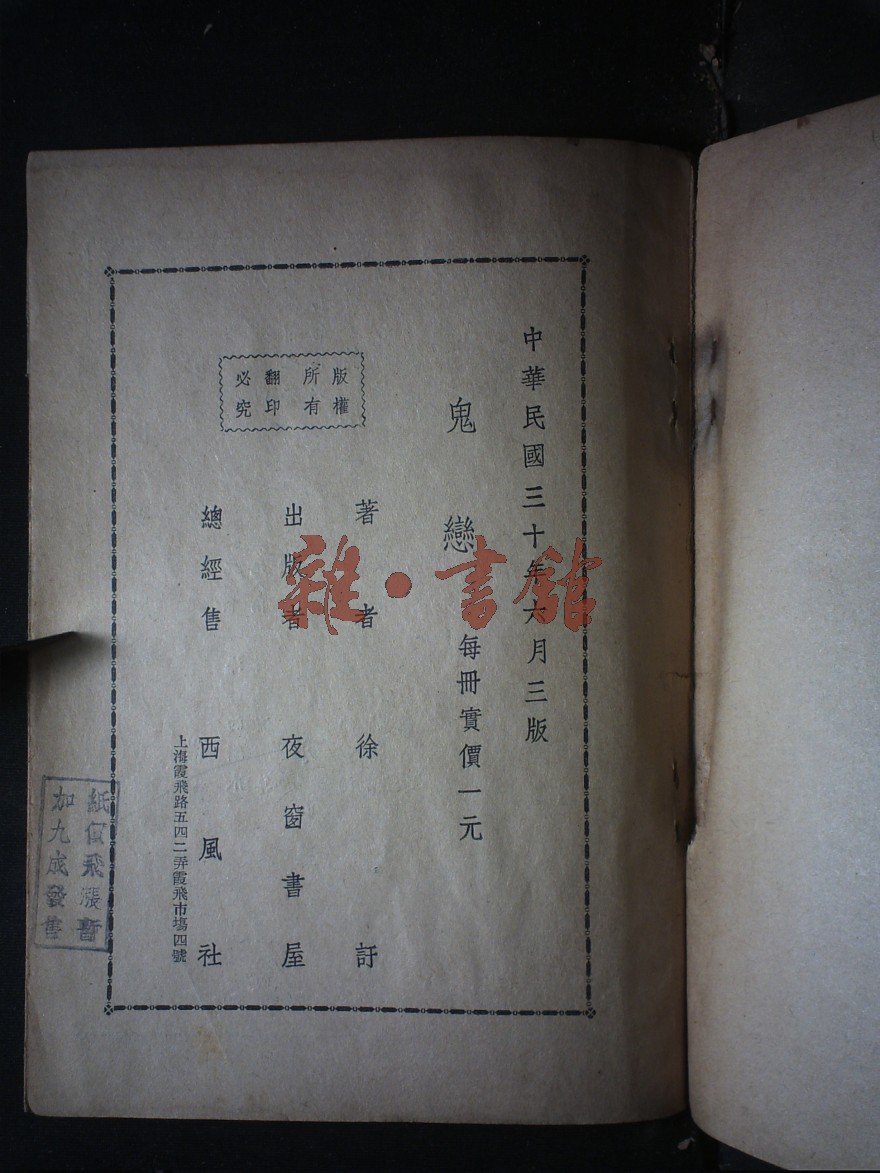 中華民國三十年六月三版
鬼戀 每冊實價一元
著者 徐訏
出版者 夜窗書屋
總經售 西風社
上海霞飛路五四二弄霞飛市場四號
版權
所有
翻印
必究
紙價飛漲暫
加九成發售
雜·書館